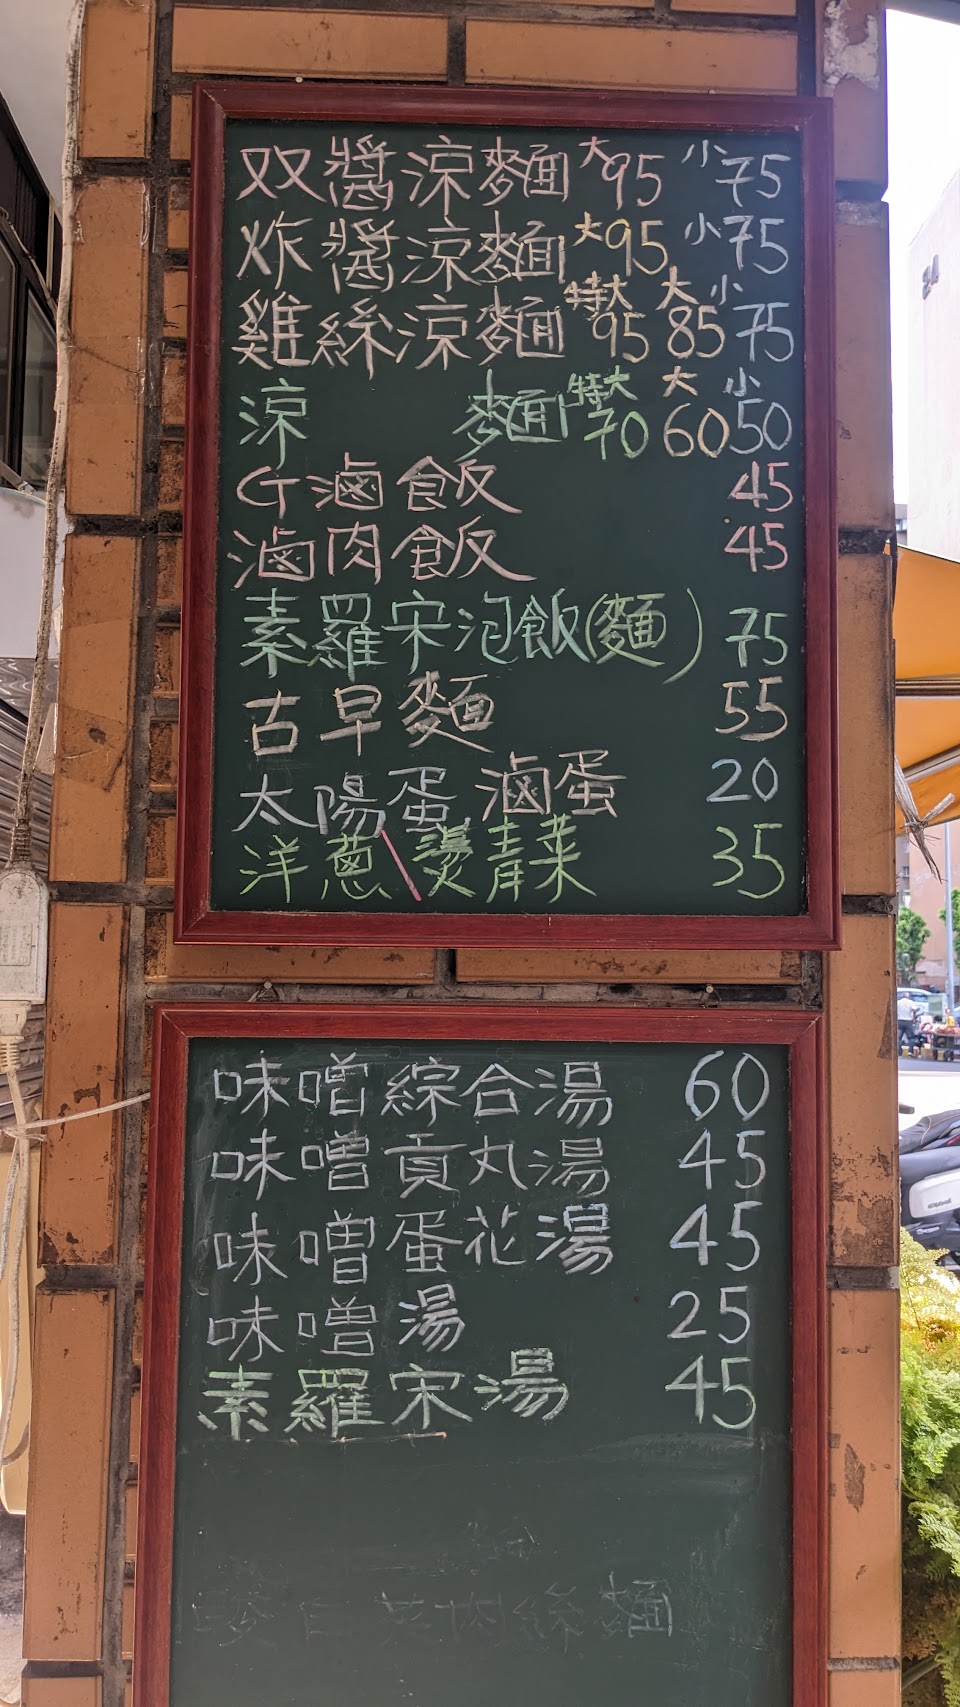 双醬涼麵 大95 小75
炸醬涼麵 大95 小75
雞絲涼麵 特大95 大85 小75
涼 麵 特大70 大60 小50
G滷飯 45
滷肉飯 45
素羅宋泡飯(麵) 75
古早麵 55
太陽蛋 滷蛋 20
洋蔥\燙青菜 35
味噌綜合湯 60
味噌貢丸湯 45
味噌蛋花湯 45
味噌湯 25
素羅宋湯 45